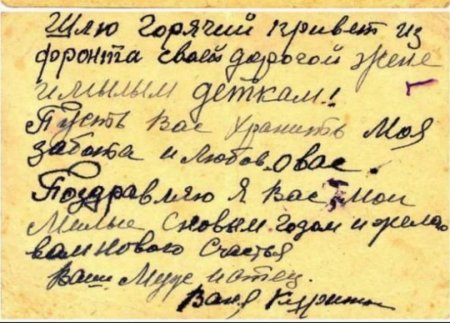 Шлю горячий привет из
фронта своей дорогой жене
и милым деткам!
Пусть Вас хранить Моя
забота и любов о вас.
Поздравляю я Вас мои
Милые с новым годом и желаю
вам нового счастья
Ваш Муж и отец.
Ваня